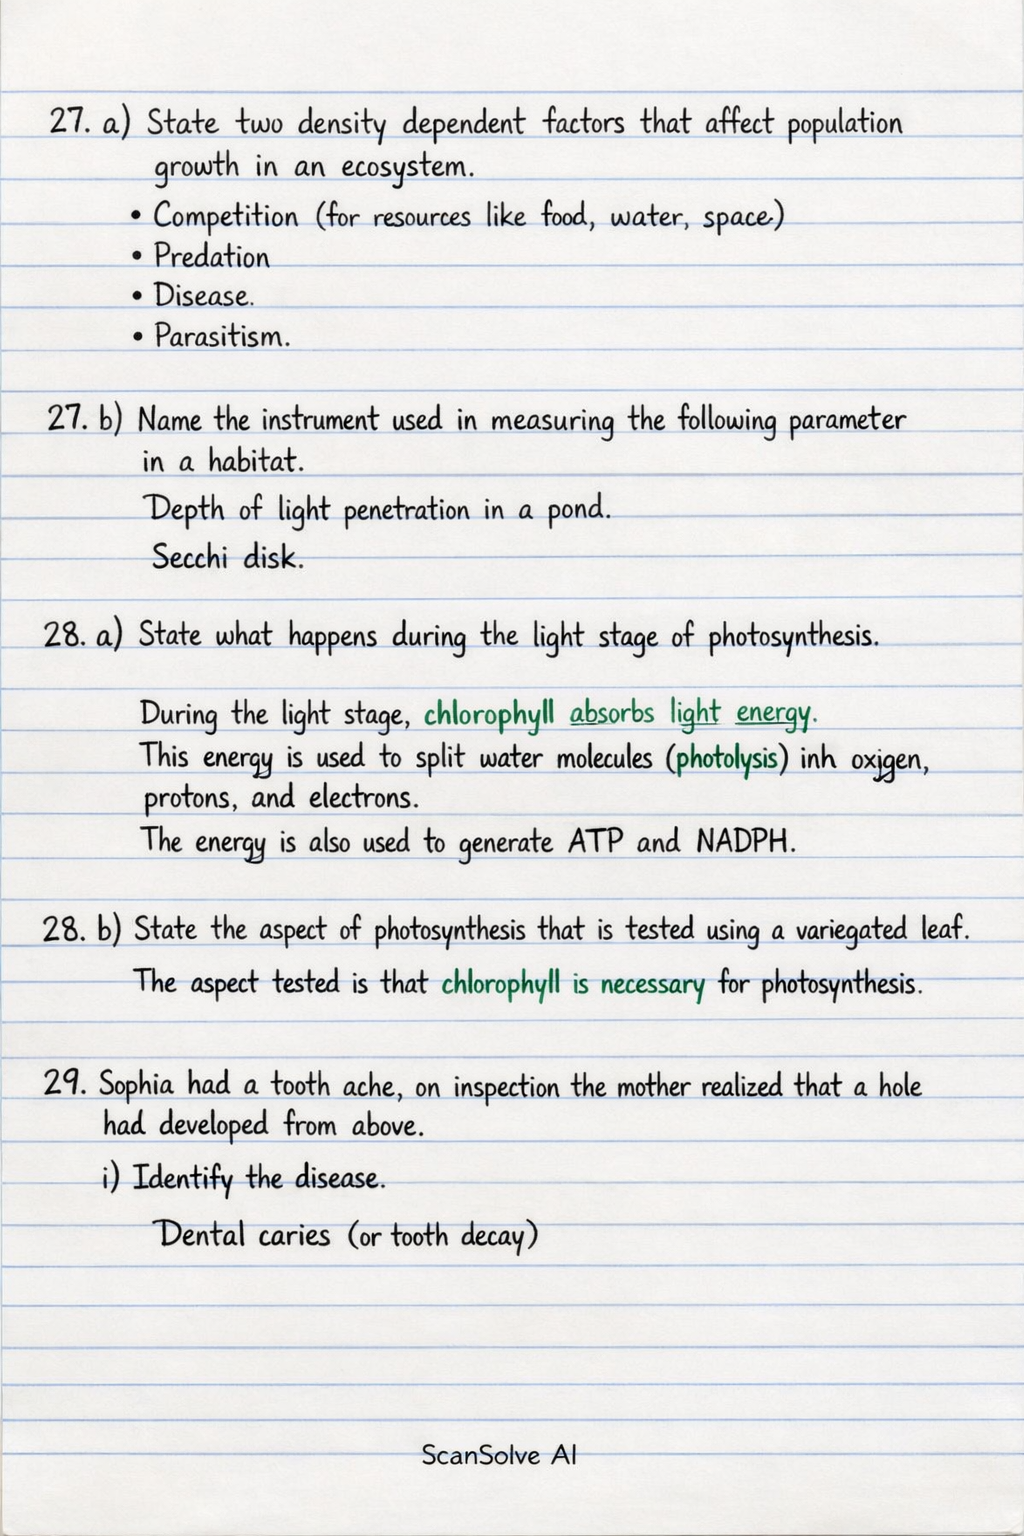 27. a) State two density dependent factors that affect population
growth in an ecosystem.
• Competition (for resources like food, water, space)
• Predation
• Disease.
• Parasitism.
27. b) Name the instrument used in measuring the following parameter
in a habitat.
Depth of light penetration in a pond.
Secchi disk.
28. a) State what happens during the light stage of photosynthesis.
During the light stage, chlorophyll absorbs light energy.
This energy is used to split water molecules (photolysis) inh oxjgen,
protons, and electrons.
The energy is also used to generate ATP and NADPH.
28. b) State the aspect of photosynthesis that is tested using a variegated leaf.
The aspect tested is that chlorophyll is necessary for photosynthesis.
29. Sophia had a tooth ache, on inspection the mother realized that a hole
had developed from above.
i) Identify the disease.
Dental caries (or tooth decay)
ScanSolve AI